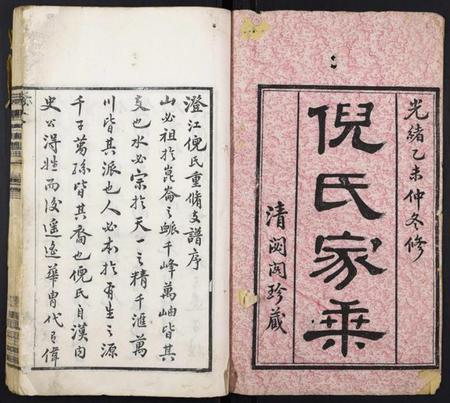 光緒乙未仲冬修
倪氏家乘
清閟閣珍藏
澄江倪氏重脩支譜序
山必祖於崑崙之脈千峰萬岫皆其
支也水必宗於天一之精千滙萬
川皆其派也人必本於有生之源
千子萬孫皆其裔也倪氏自漢內
史公得姓而後遥遥華胄代有偉